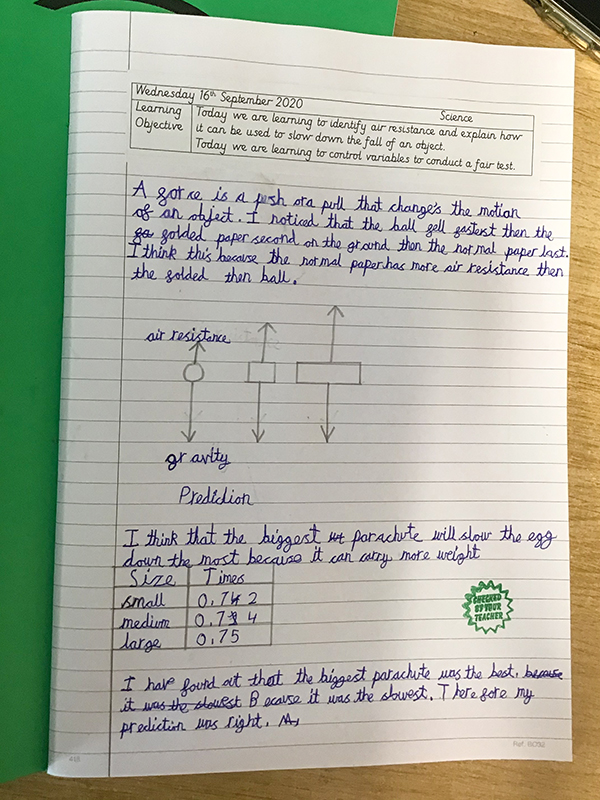 Wednesday 16th September 2020 Science
Learning Objective
Today we are learning to identify air resistance and explain how
it can be used to slow down the fall of an object.
Today we are learning to control variables to conduct a fair test.
A gorce is a push ora pull that change's the motion
of an object. I noticed that the ball gell gasterst then the
golded paper second on the ground then the normal paper last.
I think this because the normal paper has more air resistance then
the golded then ball.
air resistance
gravity
Prediction
I think that the biggest parachute will slow the egg
down the most because it can carry more weight
Size Times
small 0.742
medium 0.74
large 0.75
CHECKED
BY YOUR
TEACHER
I have gound out that the biggest parachute was the best, because
it was the slowest Because it was the slowest. Theregore my
prediction was right.